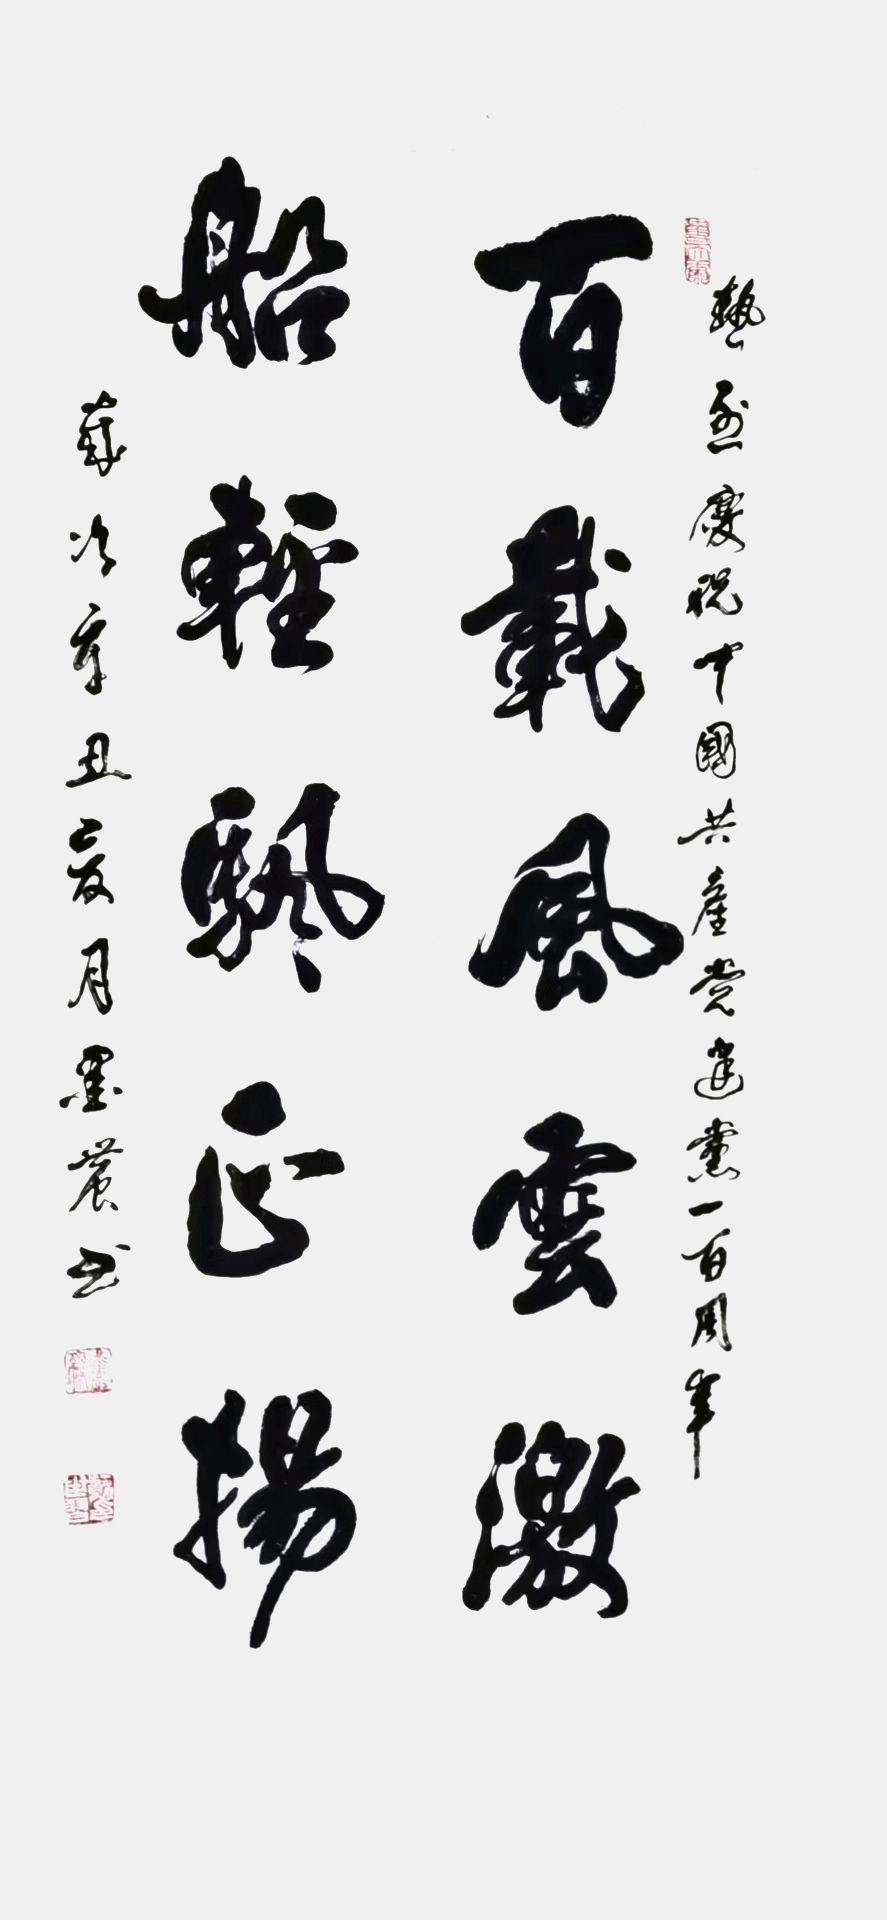 熱烈慶祝中國共產党建黨一百周年
百載風雲激
船輕颿正揚
歲次辛丑夏月墨農书